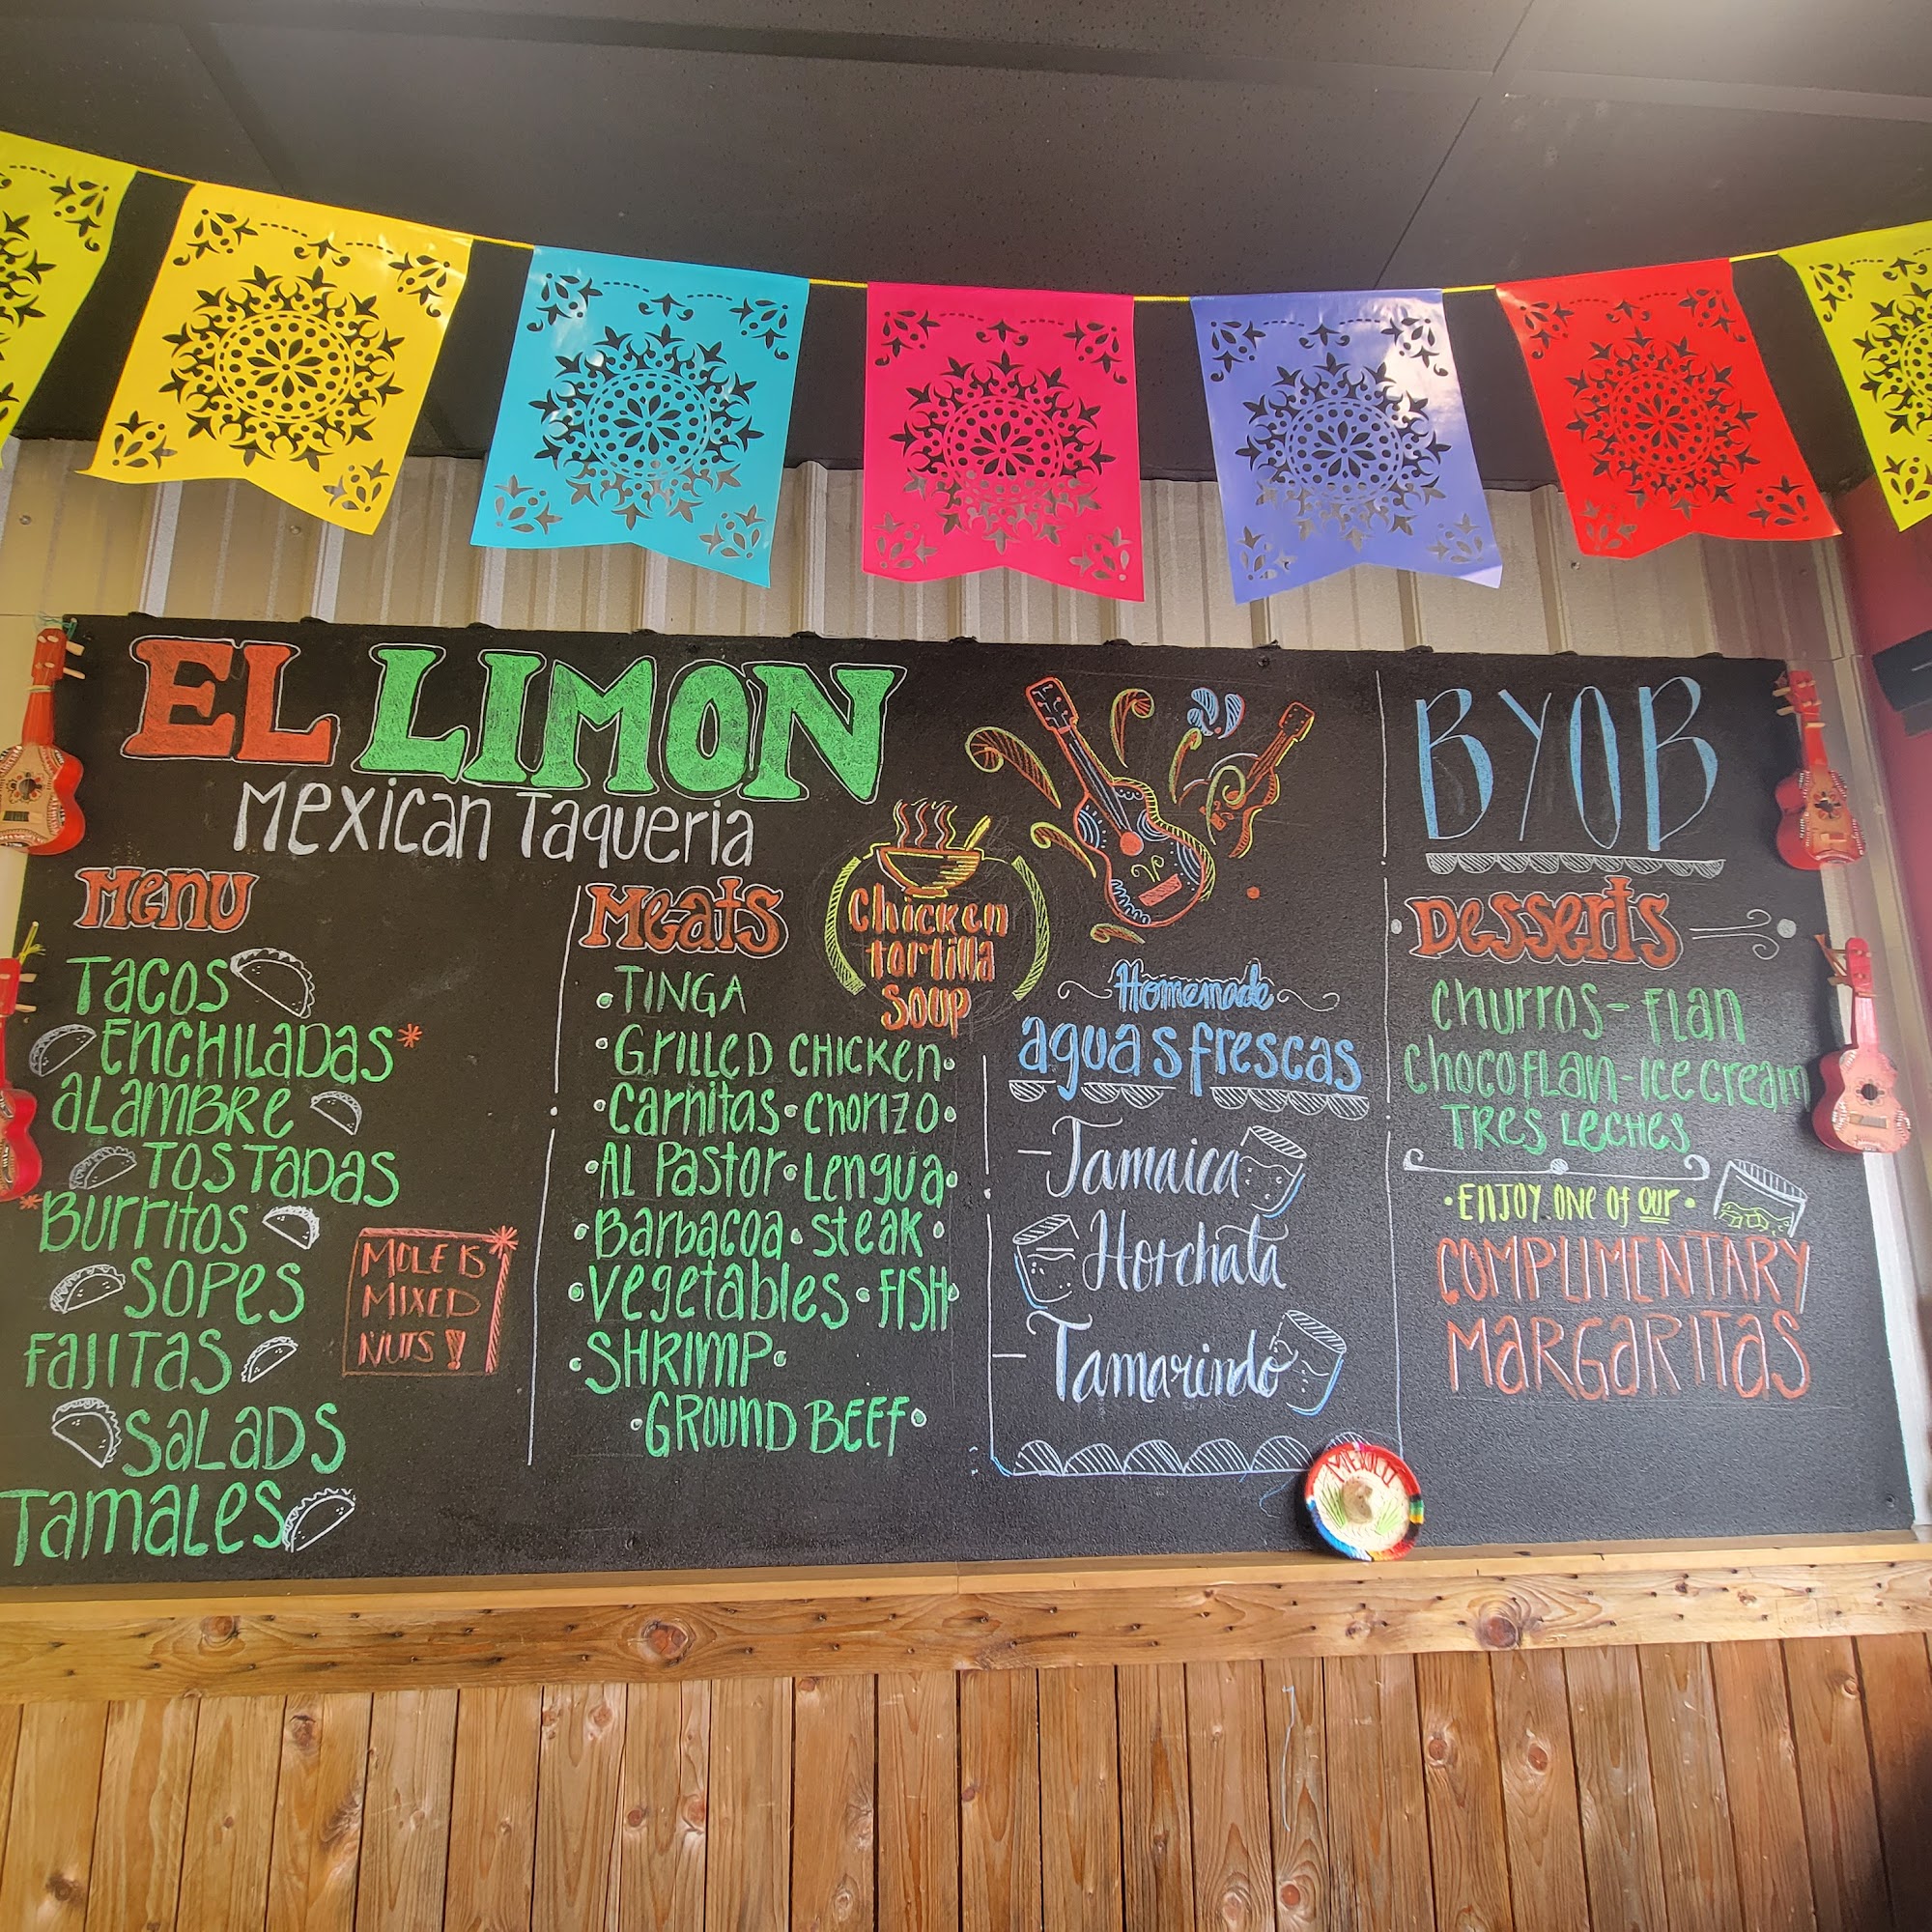 EL LIMON
Mexican Taqueria
Menu
Tacos
Enchiladas*
Alambre
Tostadas
*Burritos
Sopes
Fajitas
Salads
Tamales
MOLE IS
MIXED
NUTS!
Meats
• TINGA
• Grilled Chicken •
• Carnitas • Chorizo •
• Al Pastor • Lengua •
• Barbacoa • Steak •
• Vegetables • Fish •
• SHRIMP •
• GROUND BEEF •
Chicken
tortilla
soup
Homemade
aguas frescas
- Jamaica
- Horchata
- Tamarindo
MEXICO
BYOB
Desserts
Churros - Flan
Chocoflan - Ice cream
Tres Leches
• Enjoy one of our •
COMPLIMENTARY
MARGARITAS